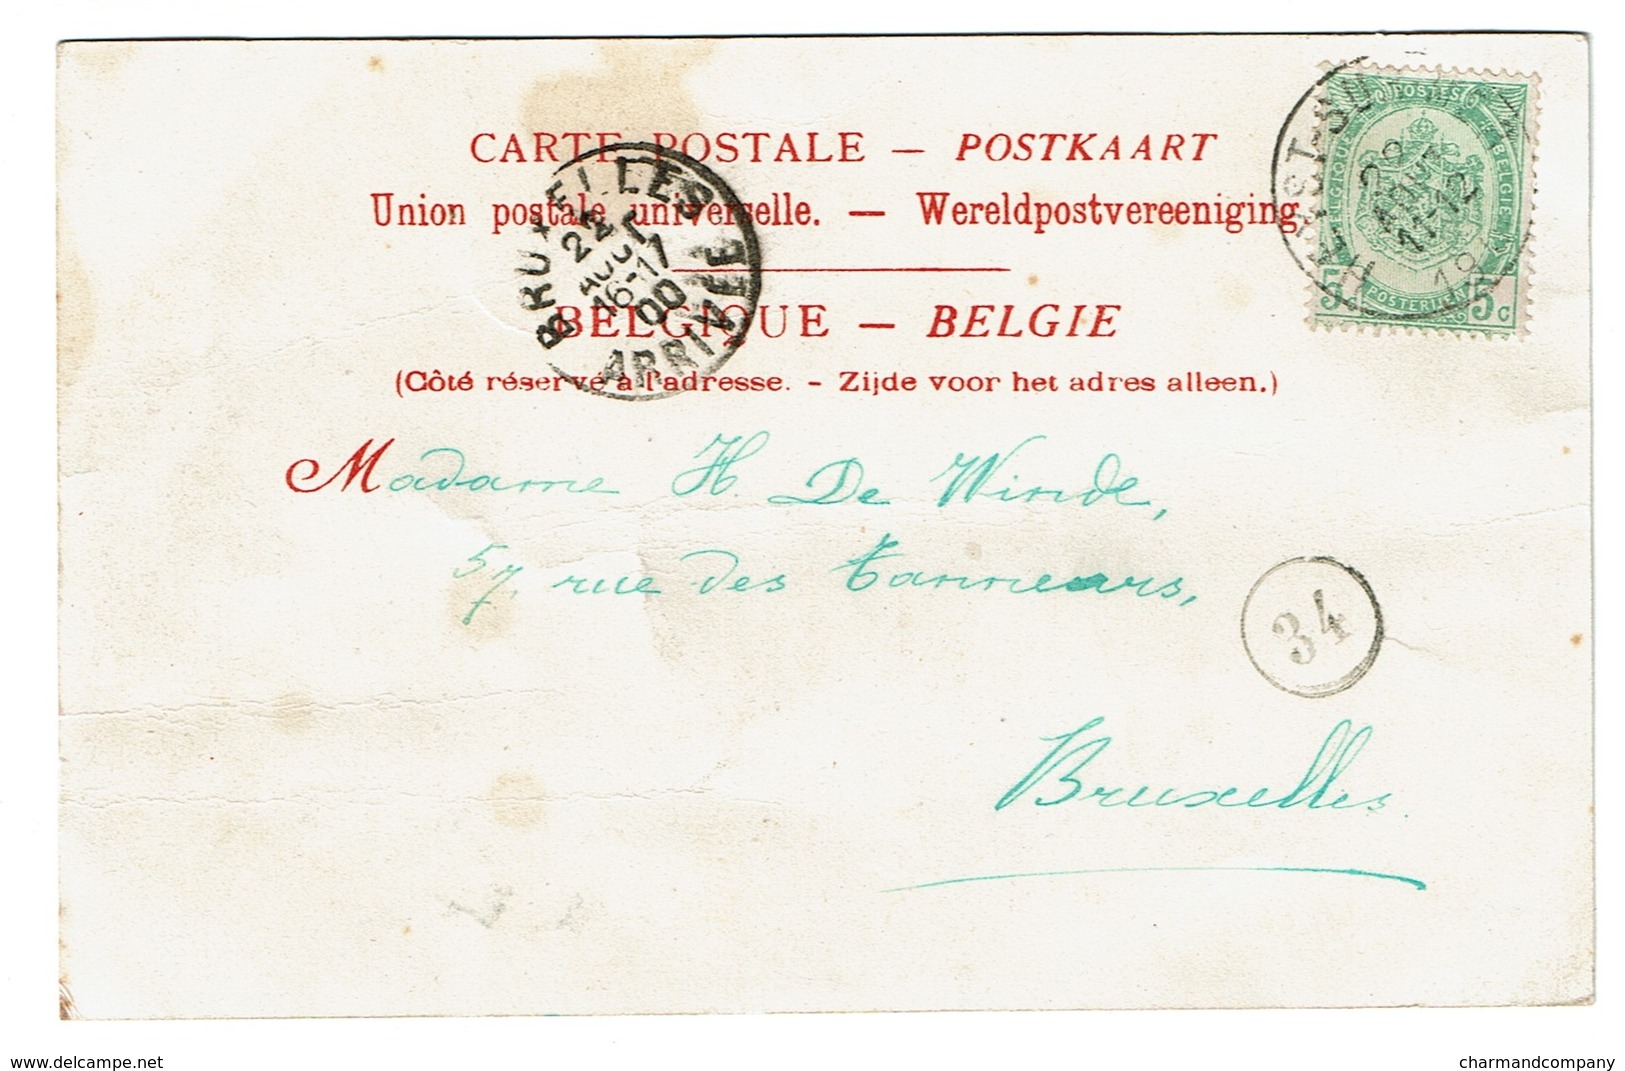 CARTE POSTALE — POSTKAART
Union postale universelle. — Wereldpostvereeniging
BELGIQUE — BELGIE
(Côté réservé à l'adresse. - Zijde voor het adres alleen.)
BRUXELLES
22
AOUT
16-17
00
ARRIVEE
POSTES
BELGIQUE
BELGIE
22
AOUT
11-12
5
5c
POSTERIJEN
Madame H. De Winde,
57, rue des Tanneurs,
34
Bruxelles.
www.delcampe.net
charmandcompany